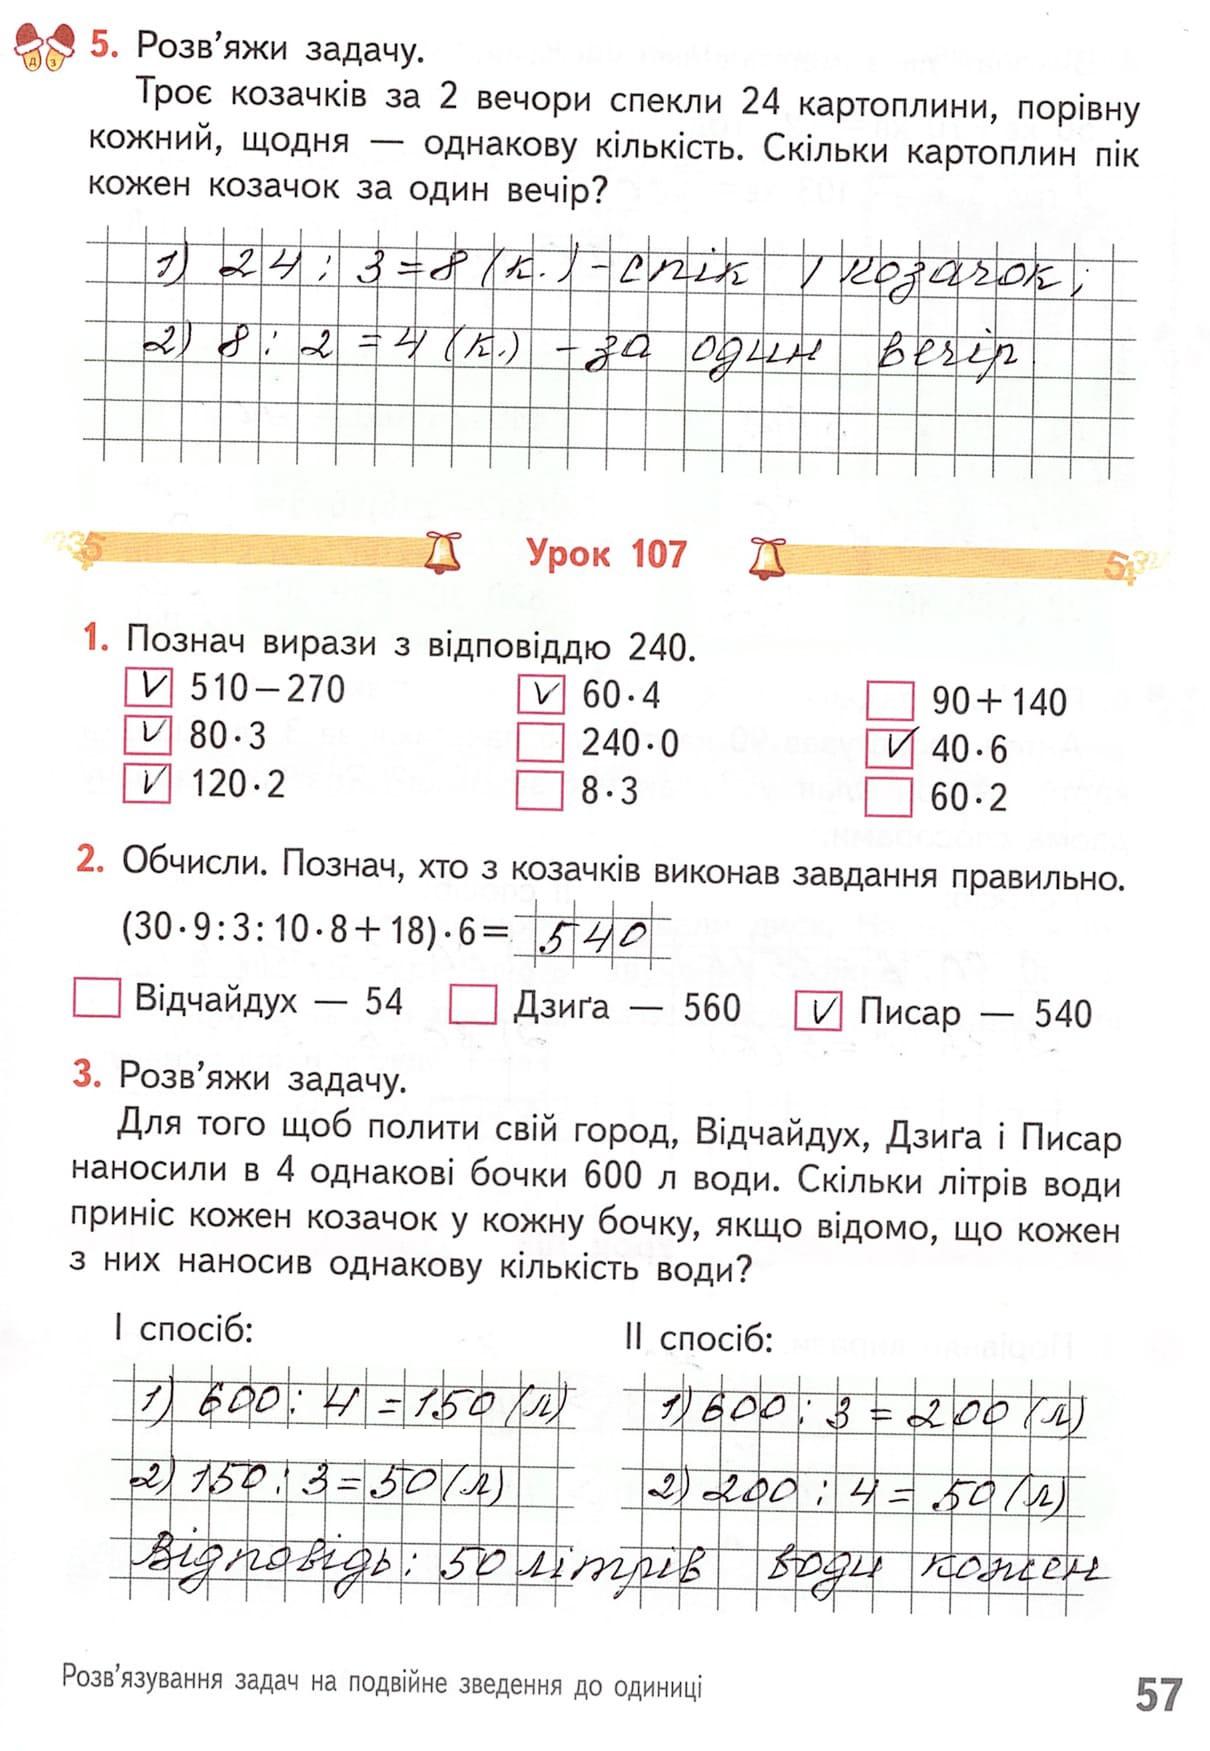 5. Розв'яжи задачу.
Троє козачків за 2 вечори спекли 24 картоплини, порівну
кожний, щодня — однакову кількість. Скільки картоплин пік
кожен козачок за один вечір?
1) 24 : 3 = 8 (к.) - спік 1 козачок;
2) 8 : 2 = 4 (к.) - за один вечір.
Урок 107
1. Познач вирази з відповіддю 240.
V 510 – 270 V 60 · 4 90 + 140
V 80 · 3 240 · 0 V 40 · 6
V 120 · 2 8 · 3 60 · 2
2. Обчисли. Познач, хто з козачків виконав завдання правильно.
(30 · 9 : 3 : 10 · 8 + 18) · 6 = 540
Відчайдух — 54 Дзиґа — 560 V Писар — 540
3. Розв'яжи задачу.
Для того щоб полити свій город, Відчайдух, Дзиґа і Писар
наносили в 4 однакові бочки 600 л води. Скільки літрів води
приніс кожен козачок у кожну бочку, якщо відомо, що кожен
з них наносив однакову кількість води?
I спосіб: II спосіб:
1) 600 : 4 = 150 (л) 1) 600 : 3 = 200 (л)
2) 150 : 3 = 50 (л) 2) 200 : 4 = 50 (л)
Відповідь: 50 літрів води кожен
Розв'язування задач на подвійне зведення до одиниці
57